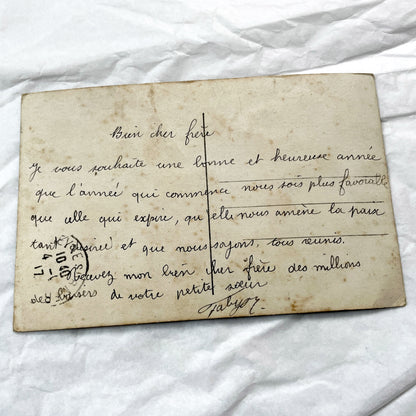 Bien cher frère
Je vous souhaite une bonne et heureuse année
que l'année qui commence nous sois plus favorable
que celle qui expire, qu'elle nous amène la paix
tant désirée et que nous soyons, tous réunis.
Recevez mon bien cher frère des millions
des baisers de votre petite sœur
10 -1
4-17